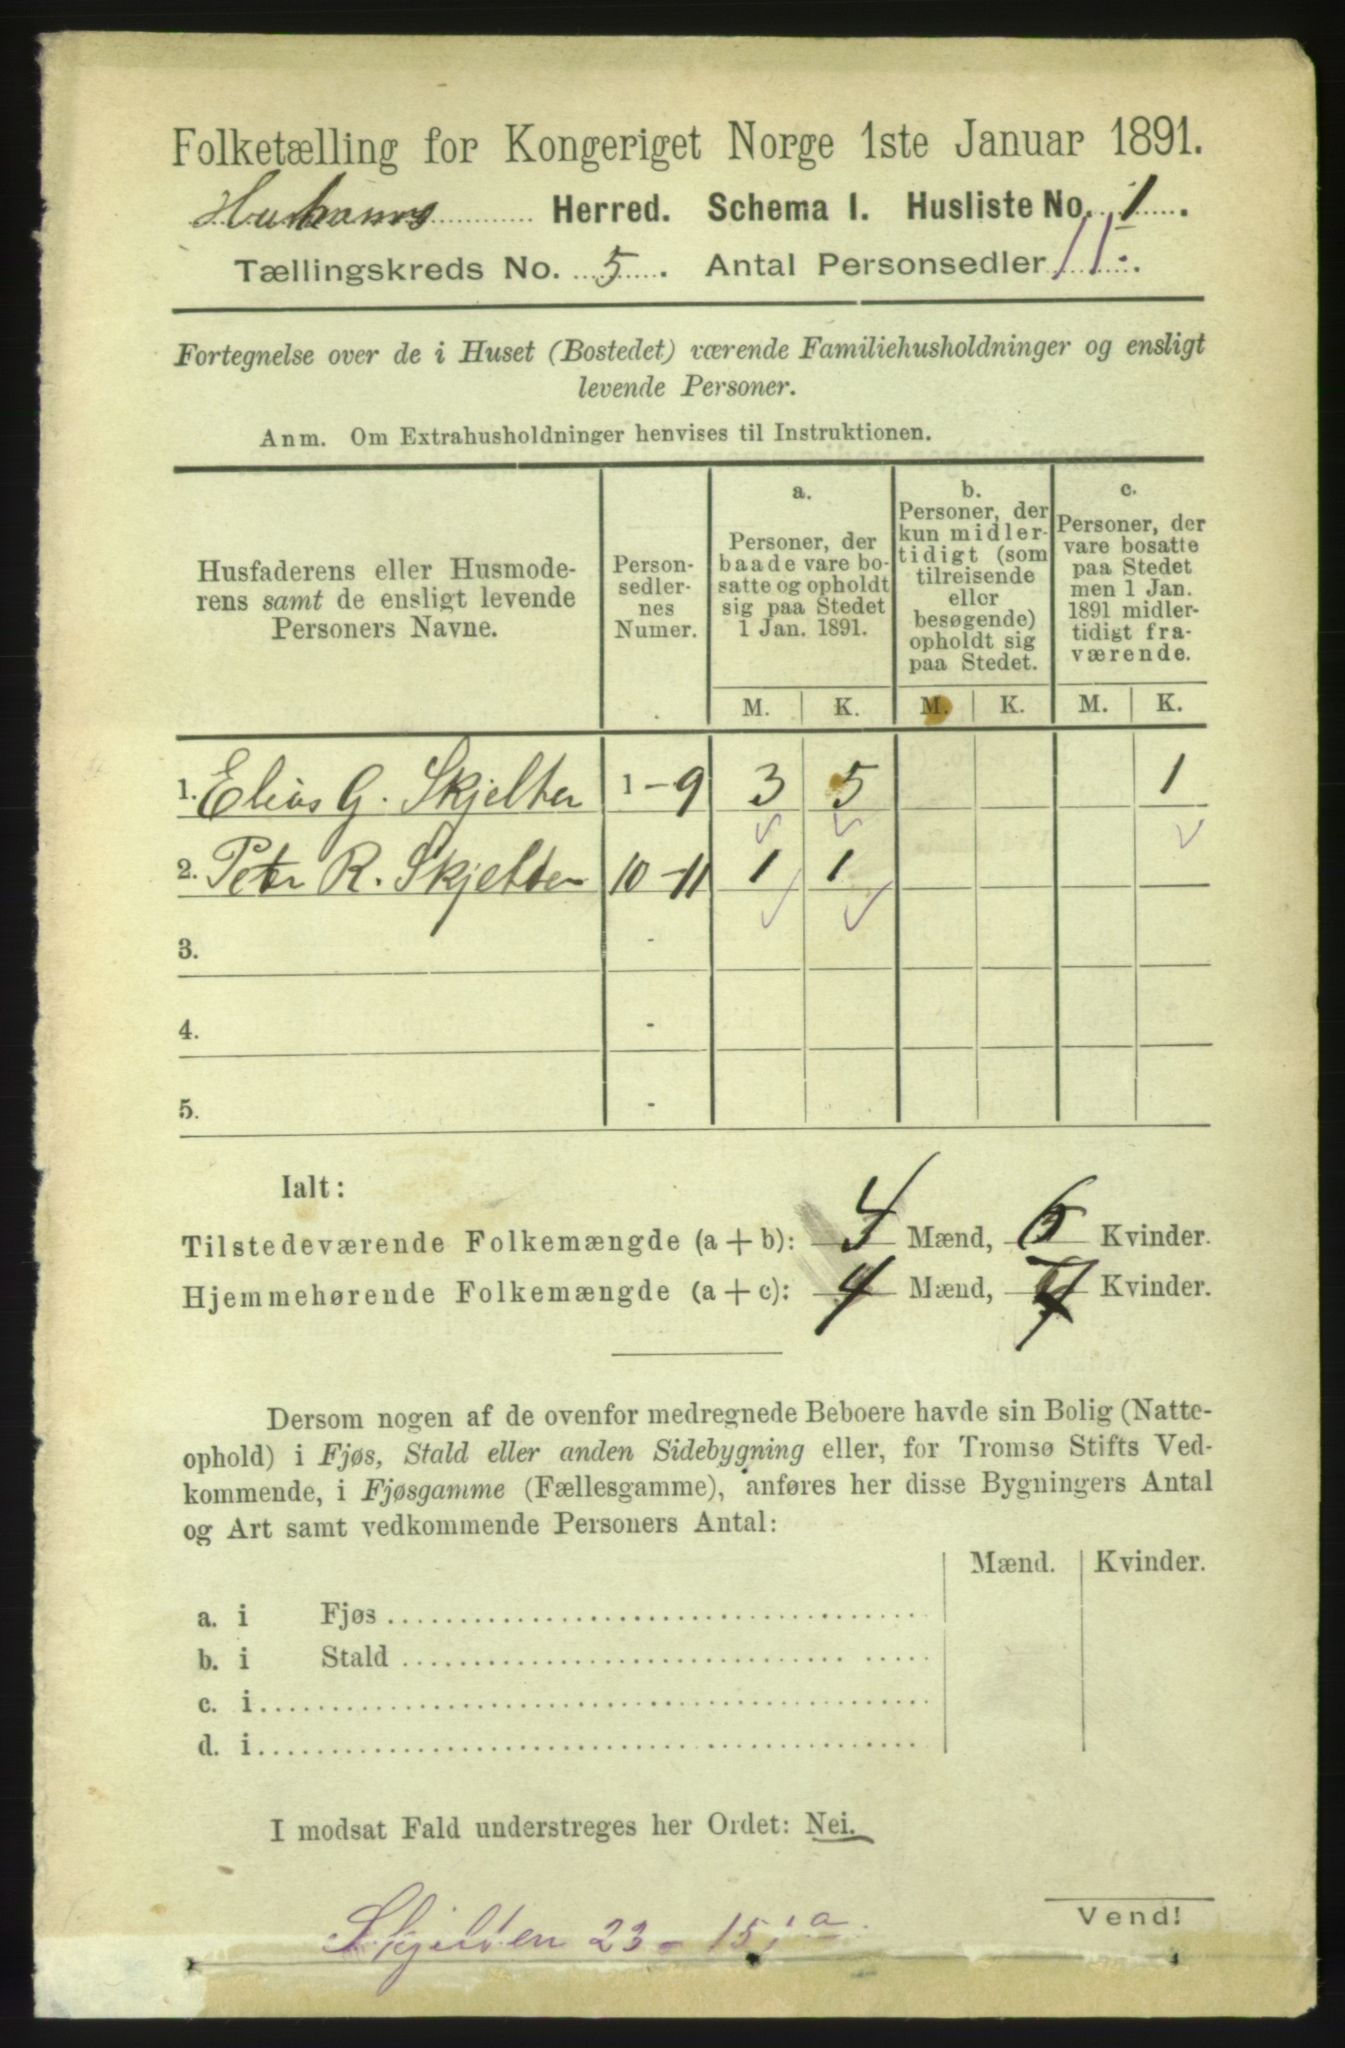 Folketælling for Kongeriget Norge 1ste Januar 1891.
Herred. Schema I. Husliste No. 1.
Tællingskreds No. 5. Antal Personsedler 11.
Fortegnelse over de i Huset (Bostedet) værende Familiehusholdninger og ensligt
levende Personer.
Anm. Om Extrahusholdninger henvises til Instruktionen.
Husfaderens eller Husmode-
rens samt de ensligt levende
Personers Navne.
Person-
sedler-
nes
Numer.
a.
Personer, der
baade vare bo-
satte og opholdt
sig paa Stedet
1 Jan. 1891.
b.
Personer, der
kun midler-
tidigt (som
tilreisende
eller
besøgende)
opholdt sig
paa Stedet.
c.
Personer, der
vare bosatte
paa Stedet
men 1 Jan.
1891 midler-
tidigt fra-
værende.
M. K. M. K. M. K.
1. Elias G. Skjelten 1-9 3 5 1
2. Petr R. Skjelten 10-11 1 1
3. -
4. -
5. -
Ialt:
Tilstedeværende Folkemængde (a + b): 4 Mænd, 6 Kvinder.
Hjemmehørende Folkemængde (a + c): 4 Mænd, 7 Kvinder.
Dersom nogen af de ovenfor medregnede Beboere havde sin Bolig (Natte-
ophold) i Fjøs, Stald eller anden Sidebygning eller, for Tromsø Stifts Ved-
kommende, i Fjøsgamme (Fællesgamme), anføres her disse Bygningers Antal
og Art samt vedkommende Personers Antal:
Mænd. Kvinder.
a. i Fjøs
b. i Stald
c. i
d. i
I modsat Fald understreges her Ordet: Nei.
Vend!
Skjelten 23 - 15, a